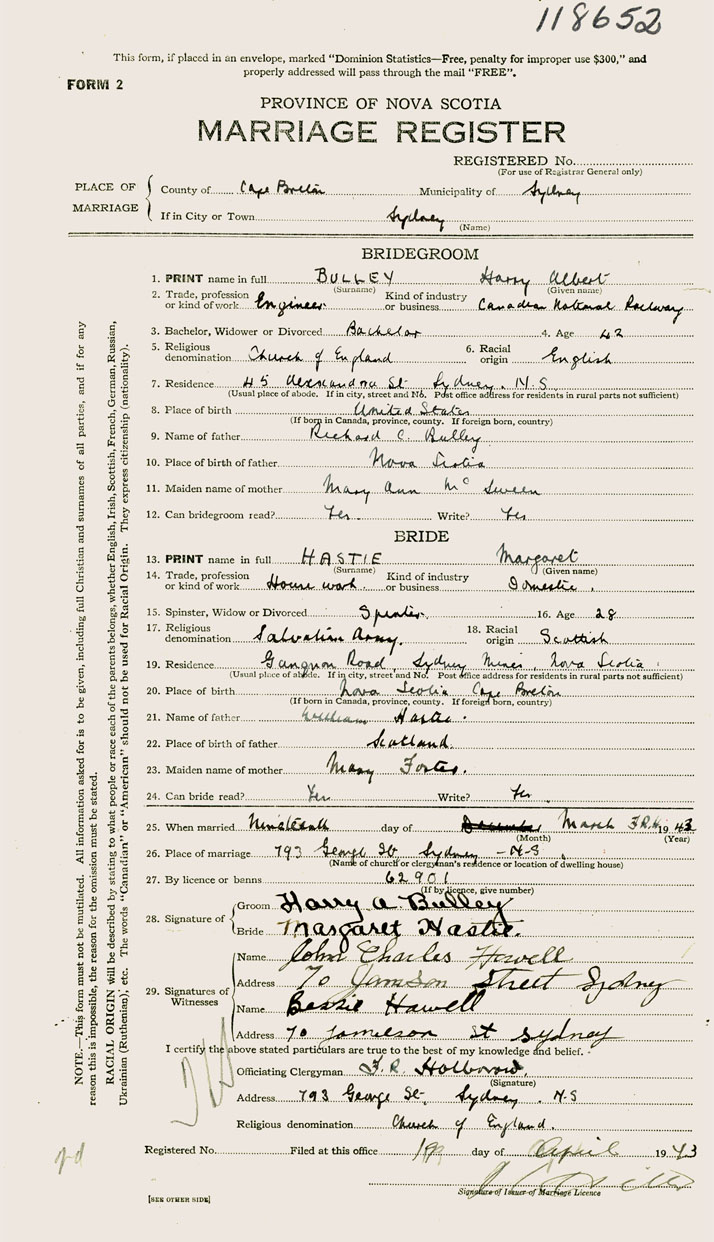 118652
This form, if placed in an envelope, marked "Dominion Statistics—Free, penalty for improper use $300," and
properly addressed will pass through the mail "FREE".
FORM 2
PROVINCE OF NOVA SCOTIA
MARRIAGE REGISTER
REGISTERED No.
(For use of Registrar General only)
PLACE OF MARRIAGE
County of Cape Breton Municipality of Sydney
If in City or Town Sydney
(Name)
BRIDEGROOM
1. PRINT name in full BULLEY Harry Albert
(Surname) (Given name)
2. Trade, profession or kind of work Engineer Kind of industry or business Canadian National Railway
3. Bachelor, Widower or Divorced Bachelor 4. Age 42
5. Religious denomination Church of England 6. Racial origin English
7. Residence 45 Alexandra St Sydney. N.S
(Usual place of abode. If in city, street and No. Post office address for residents in rural parts not sufficient)
8. Place of birth United States
(If born in Canada, province, county. If foreign born, country)
9. Name of father Richard C. Bulley
10. Place of birth of father Nova Scotia
11. Maiden name of mother Mary Ann Mc Sween
12. Can bridegroom read? Yes. Write? Yes
BRIDE
13. PRINT name in full HASTIE Margaret
(Surname) (Given name)
14. Trade, profession or kind of work House work. Kind of industry or business Domestic.
15. Spinster, Widow or Divorced Spinster. 16. Age 28
17. Religious denomination Salvation Army. 18. Racial origin Scottish
19. Residence Road, Sydney Mines, Nova Scotia.
(Usual place of abode. If in city, street and No. Post office address for residents in rural parts not sufficient)
20. Place of birth Nova Scotia Cape Breton
(If born in Canada, province, county. If foreign born, country)
21. Name of father William Hastie.
22. Place of birth of father Scotland.
23. Maiden name of mother Mary Foster.
24. Can bride read? Yes Write? Yes.
25. When married Nineteenth day of December March F.R.H. 1943
(Month) (Year)
26. Place of marriage 793 George St Sydney - N-S.
(Name of church or clergyman's residence or location of dwelling house)
27. By licence or banns 62901
(If by licence, give number)
28. Signature of
Groom Harry A Bulley
Bride Margaret Hastie.
29. Signatures of Witnesses
Name John Charles Howell
Address 70 Jamison Street Sydney
Name Bessie Howell
Address 70 Jamieson St Sydney
I certify the above stated particulars are true to the best of my knowledge and belief.
Officiating Clergyman F.R. Holborow.
(Signature)
Address 793 George St. Sydney. N.S
Religious denomination Church of England.
Registered No. Filed at this office day of April 1943
Signature of Issuer of Marriage Licence
[SEE OTHER SIDE]
NOTE.—This form must not be mutilated. All information asked for is to be given, including full Christian and surnames of all parties, and if for any
reason this is impossible, the reason for the omission must be stated.
RACIAL ORIGIN will be described by stating to what people or race each of the parents belongs, whether English, Irish, Scottish, French, German, Russian,
Ukrainian (Ruthenian), etc. The words "Canadian" or "American" should not be used for Racial Origin. They express citizenship (nationality).